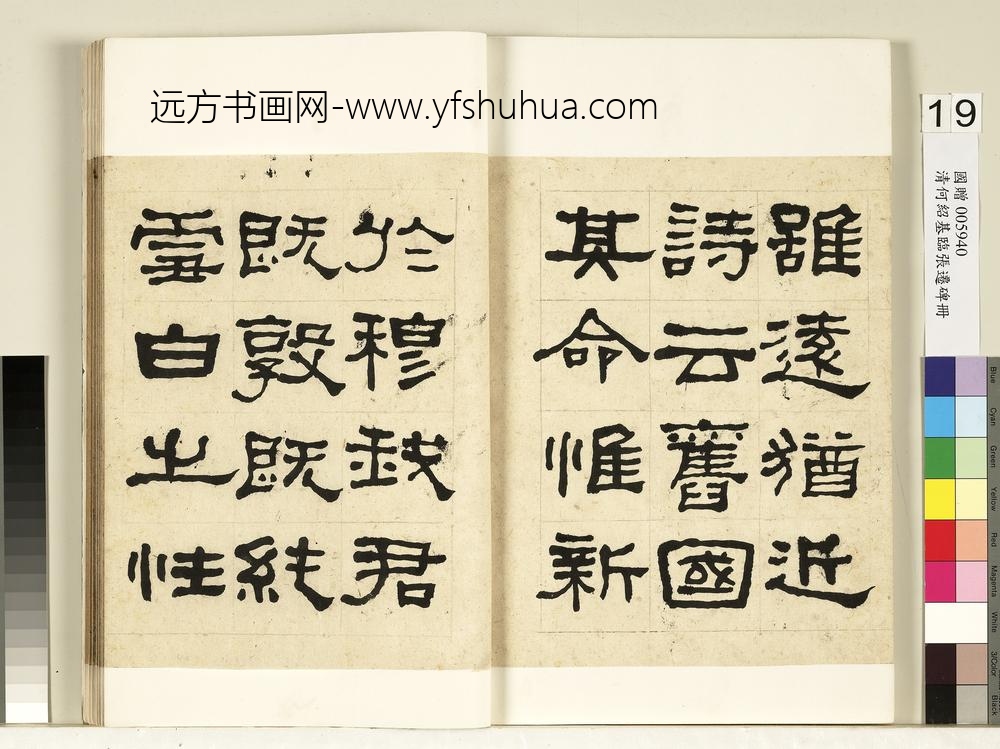 远方书画网-www.yfshuhua.com
雖遠猶近
詩云舊國
其命惟新
於穆我君
既敦既純
雪白之性
19
國贈 005940
清何紹基臨張遷碑冊
Blue
Cyan
Green
Yellow
Red
Magenta
White
3/Color
Black